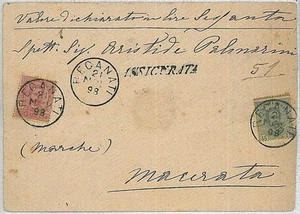 Valore dichiarato in lire Sessanta
Spett. Sig. Aristide Palmarini
ASSICURATA
51
RECANATI
21
98
RECANATI
21
98
RECANATI
98
(Marche)
Macerata